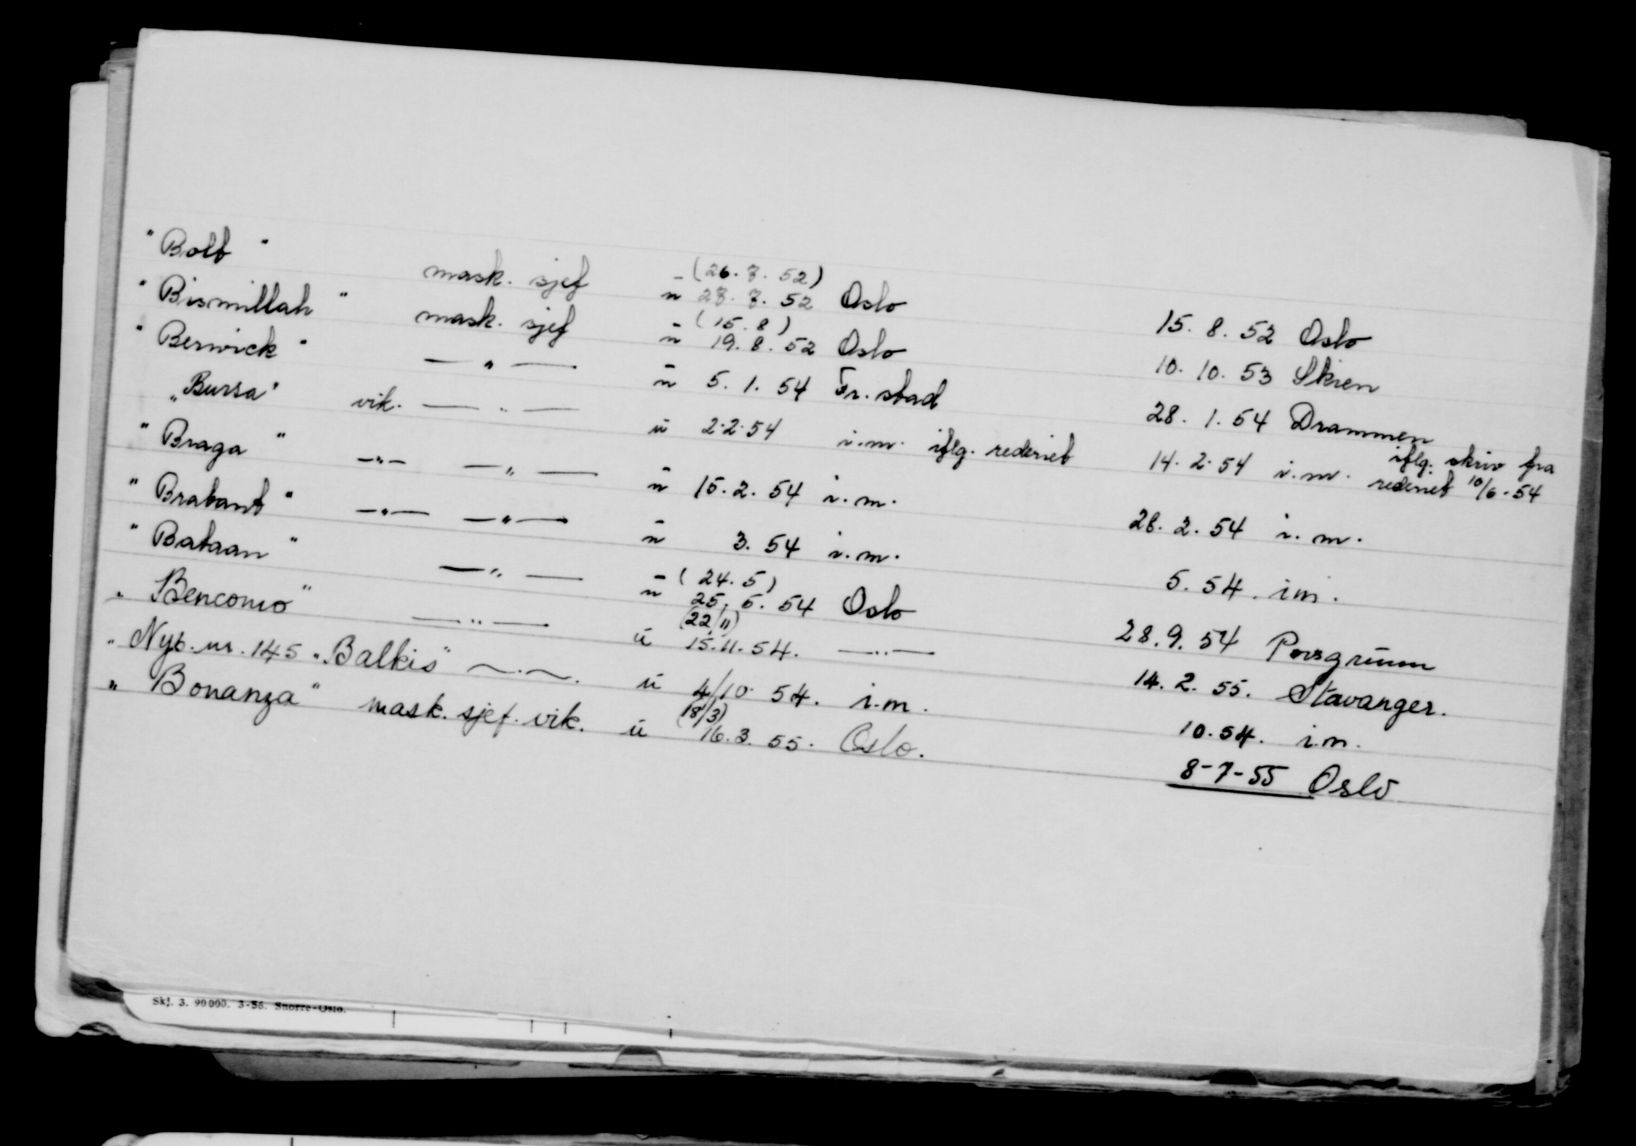 "Bolt" mask. sjef - (26.7.52) ü 28.7.52 Oslo 15.8.52 Oslo
"Bismillah" mask. sjef - (15.8) ü 19.8.52 Oslo 10.10.53 Skien
"Berwick" —"— ü 5.1.54 Fr.stad 28.1.54 Drammen
"Bursa" vik. —"— ü 2.2.54 i.m. iflg. rederiet 14.2.54 i.m. iflg. skriv fra rederiet 10/6-54
"Braga" —"— —"— ü 15.2.54 i.m. 28.2.54 i.m.
"Brabant" —"— —"— ü 3.54 i.m. 5.54. i.m.
"Bataan" —"— - (24.5) ü 25.5.54 Oslo 28.9.54 Porsgrunn
"Bencomo" —"— (22/11) ü 15.11.54. —"— 14.2.55. Stavanger.
" Nyb. nr. 145 "Balkis" —"— ü 4/10 54. i.m. 10.54. i.m.
"Bonanza" mask. sjef. vik. ü (18/3) 16.3.55. Oslo. 8-7-55 Oslo
Skj. 3. 90000. 3-56. Snorre-Oslo.